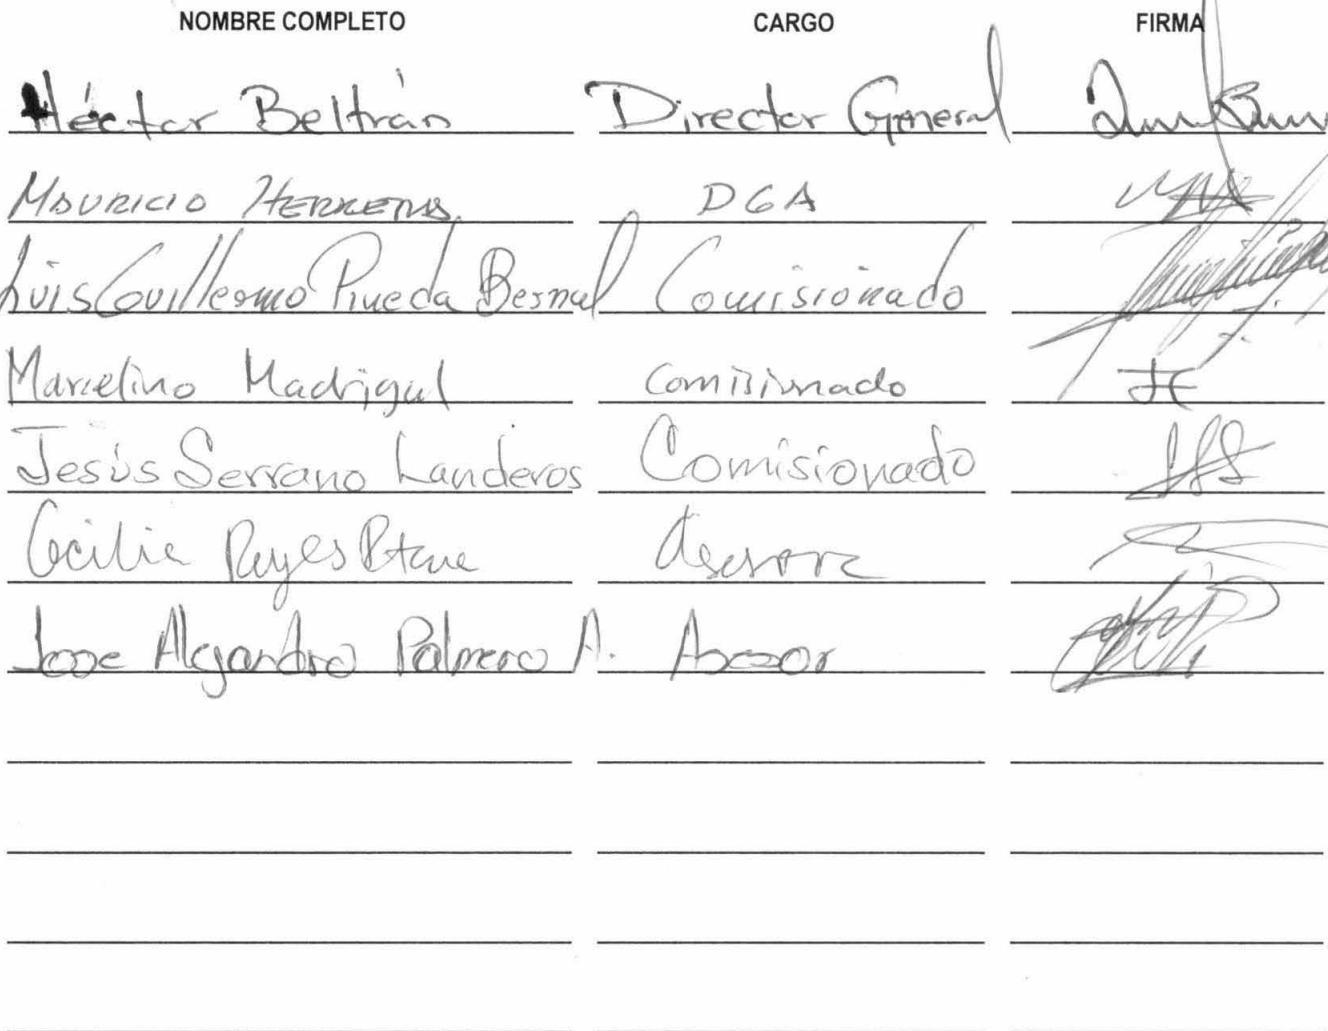 NOMBRE COMPLETO CARGO FIRMA
Héctor Beltrán Director General
MAURICIO HERRERA DGA
Luis Guillermo Pineda Bernal Comisionado
Marcelino Madrigal Comisionado
Jesús Serrano Landeros Comisionado
Cecilia Reyes Asesora
Jose Alejandro Palmero A. Asesor